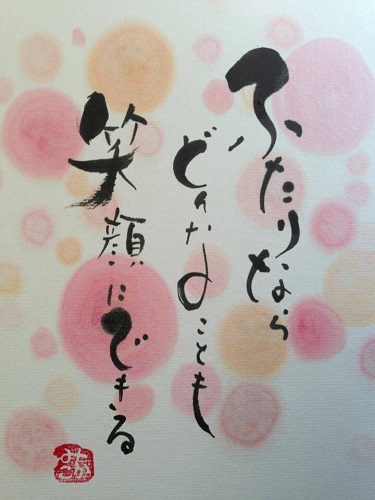 ふたりなら
どんなことも
笑顔にできる